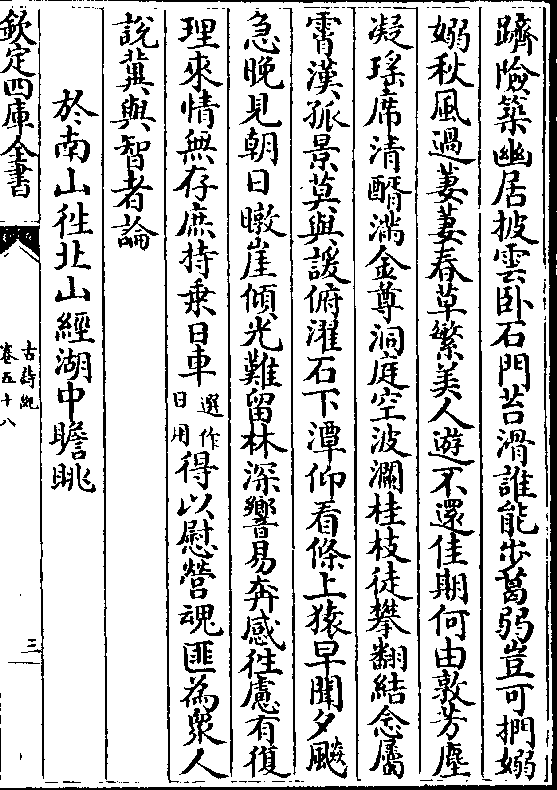 躋險築幽居披雲臥石門苔滑誰能步葛弱豈可捫嫋
嫋秋風過萋萋春草繁美人遊不還佳期何由敦芳塵
凝瑤席清醑滿金尊洞庭空波瀾桂枝徒攀翻結念屬
霄漢孤景莫與諼俯濯石下潭仰看條上猿早聞夕飈
急晚見朝日暾崖傾光難留林深響易奔感徃慮有復
理來情無存庶持乗日車選作日用得以慰營魂匪為衆人
說冀與智者論
於南山徃北山經湖中瞻眺
欽定四庫全書
古詩紀
卷五十八
三